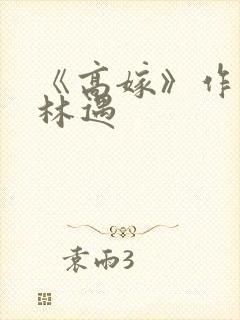 《高嫁》作
林遇
袁雨3